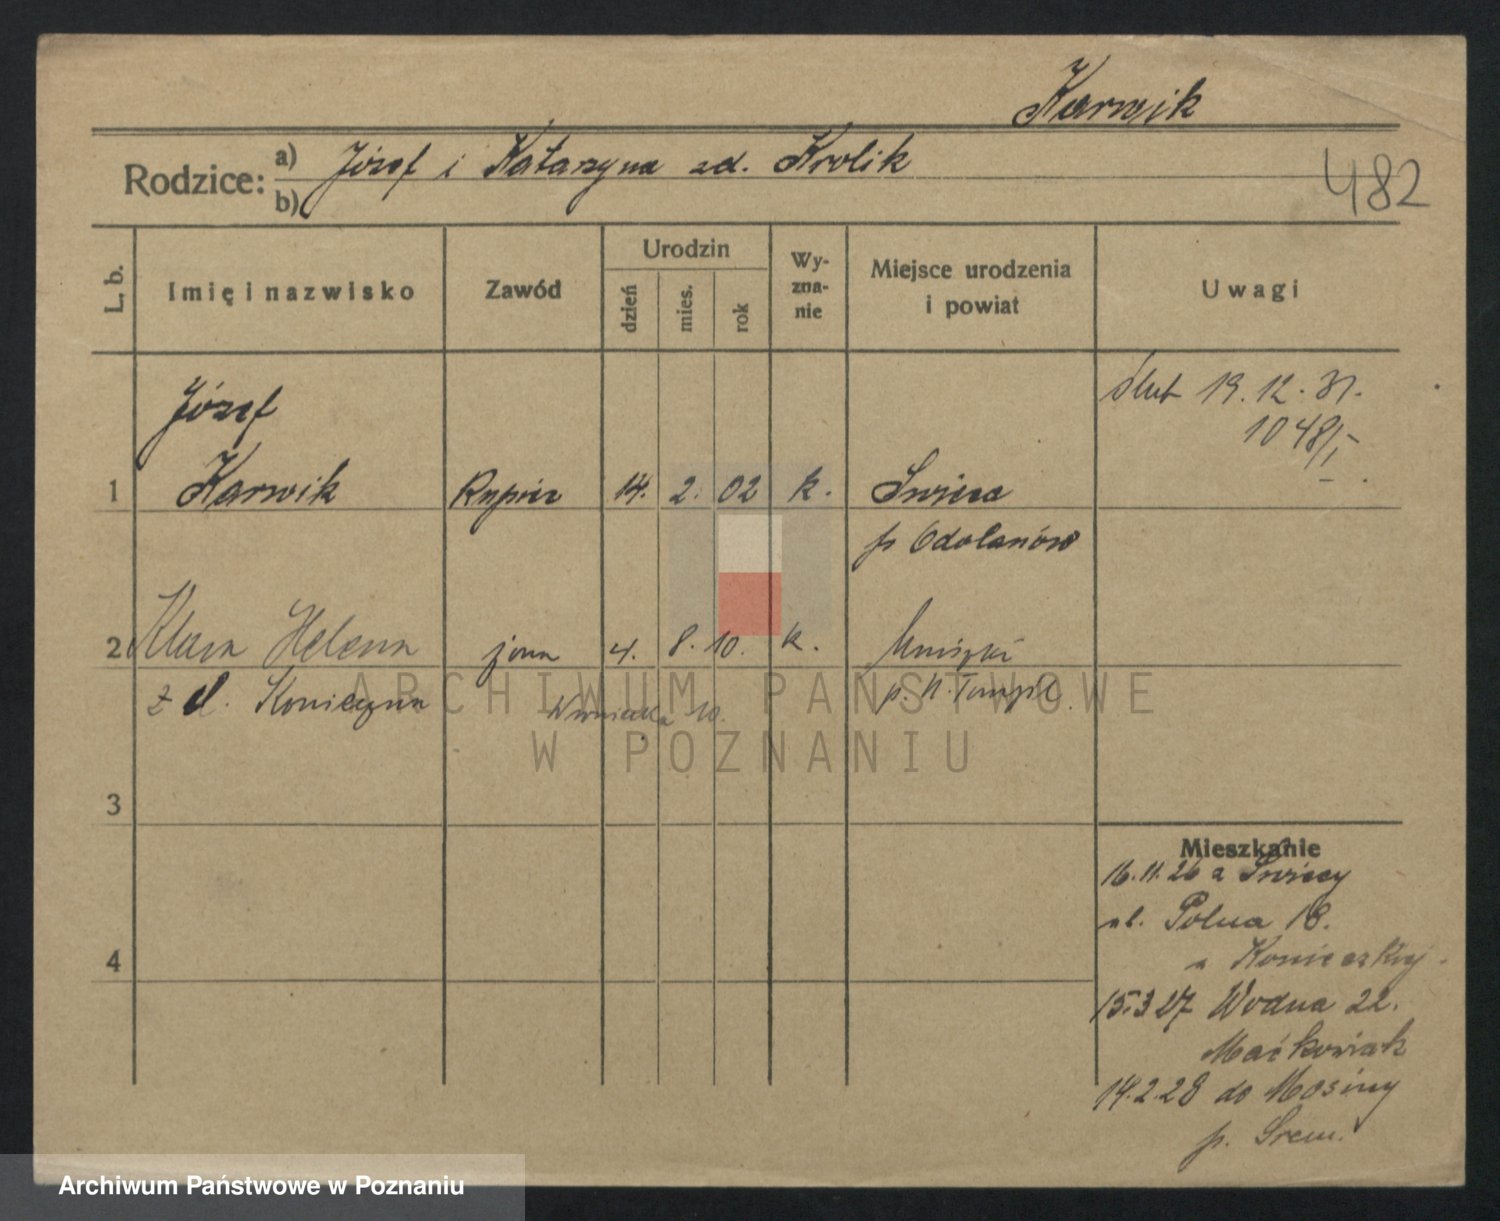 Karwik
Rodzice: a) Józef i Katarzyna zd. Krolik
b)
482
L. b.
Imię i nazwisko
Zawód
Urodzin
dzień
mies.
rok
Wy-
zna-
nie
Miejsce urodzenia
i powiat
Uwagi
Józef
ślub 19.12.31.
1048/I
1 Karwik 14. 2. 02 k. Swieca
p Odolanów
2 Klara Helena żona 4. 8. 10. k.
z d. Konieczna 10. p. N. Tomyśl.
ARCHIWUM PAŃSTWOWE
W POZNANIU
3
4
Mieszkanie
16.11.26 z Swiecy
ul. Polna 18.
u Konieczkiej.
15.3 27 Wodna 22.
Maćkowiak
14.2.28 do Mosiny
p. Srem.
Archiwum Państwowe w Poznaniu